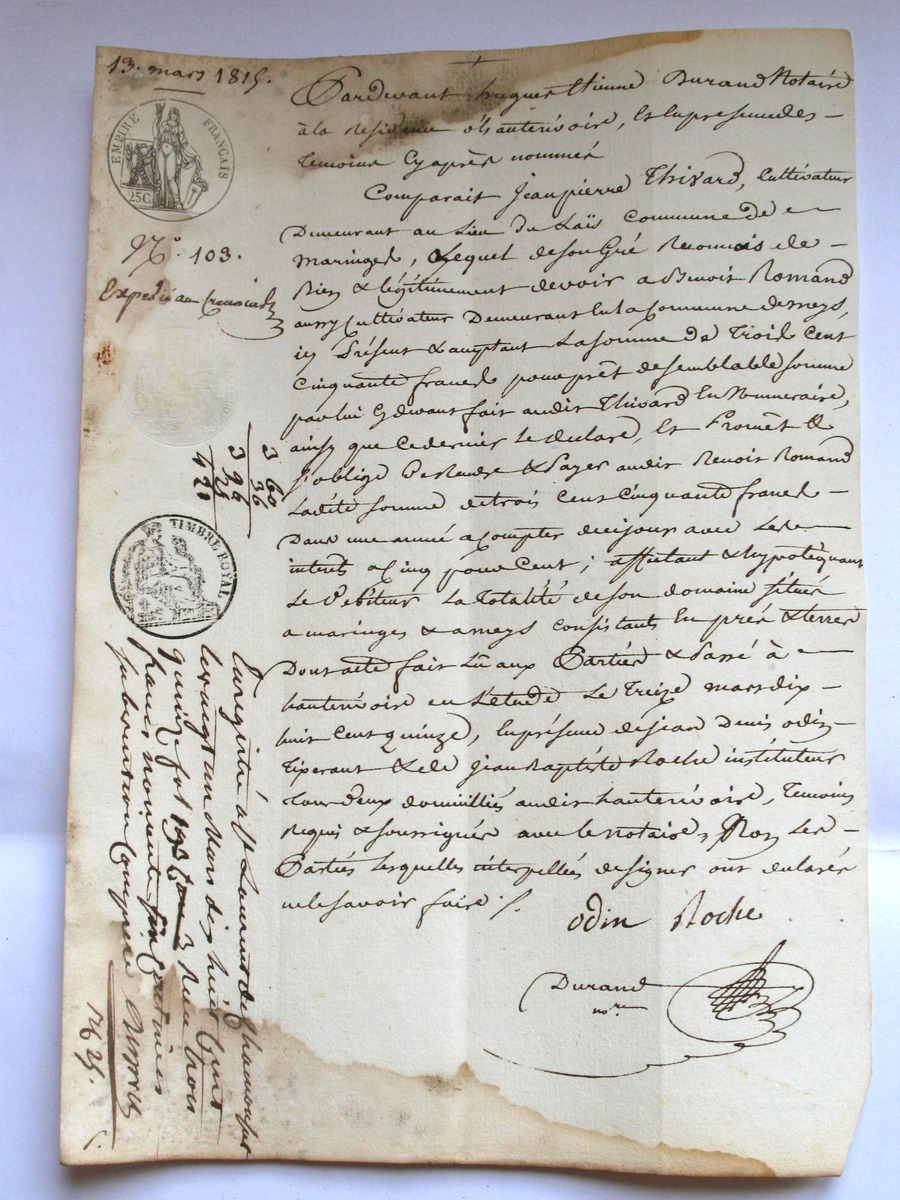 13. mars 1815.
EMPIRE FRANÇAIS
25C.
N° 103.
Expedié au Creancier
TIMBRE ROYAL
Pardevant hugues Etienne Durand Notaire
à la Residence d'hauterivoire, Et En presence des
temoins Cy après nommés
Comparait Jean pierre Thivard, Cultivateur
Demeurant au Lieu du Laïs Commune de
maringes, Lequel de son Gré Reconnais de
Bien & légitimement devoir a Benoit Romand
aussy Cultivateur Demeurant En La Commune de meys,
icy Présent & acceptant La somme de Trois Cent
Cinquante francs pour prêt de semblable somme
par lui Cydevant fait audit Thivard En Numeraire,
ainsy que Ce dernier Le declare, Et Promêt &
s'oblige De Rendre & Payer audit Benoit Romand
Ladite somme de trois Cent Cinquante francs
Dans une année a Compter de ce jour avec Les
interêts a Cinq pour Cent; affectant & hypotéquant
Le Debiteur La Totalité de son domaine situés
a maringes & a meys Consistant En prés & terres
Dont acte fait Lû aux Parties & Passé à
hauterivoire en L'etude Le Treize mars dix
huit Cent quinze, En présence de jean Denis odin
Tixerant & de Jean Baptiste Roche instituteur
Tous deux domiciliés audit hauterivoire, Temoins
Requis & soussignés avec le notaire, Non Les
Parties Lesquelles interpellées de signer ont declarés
ne le savoir faire ./.
odin Roche
Durand
nore
3 60
36
3 96
25
4 20
Enregistré à St Laurent de Chamousset
le vingt un Mars dix huit Cent
quinze fol 193 Case 3 Reçu trois
francs
subvention Comprise